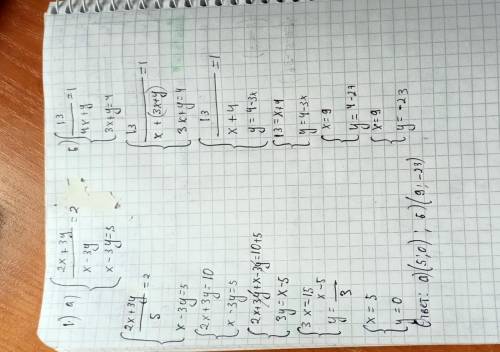 1) а) { (2x+3y)/(x-3y) = 2
x-3y=5
{ (2x+3y)/5 = 2
x-3y=5
{ 2x+3y=10
x-3y=5
{ 2x+3y+x-3y=10+5
3y=x-5
{ 3x=15
y= (x-5)/3
{ x=5
y=0
б) { 13/(4x+y) =1
3x+y=4
{ 13/(x+(3x+y)) =1
3x+y=4
{ 13/(x+4) =1
y=4-3x
{ 13=x+4
y=4-3x
{ x=9
y=4-27
{ x=9
y=-23
Ответ: а)(5;0); б)(9;-23)